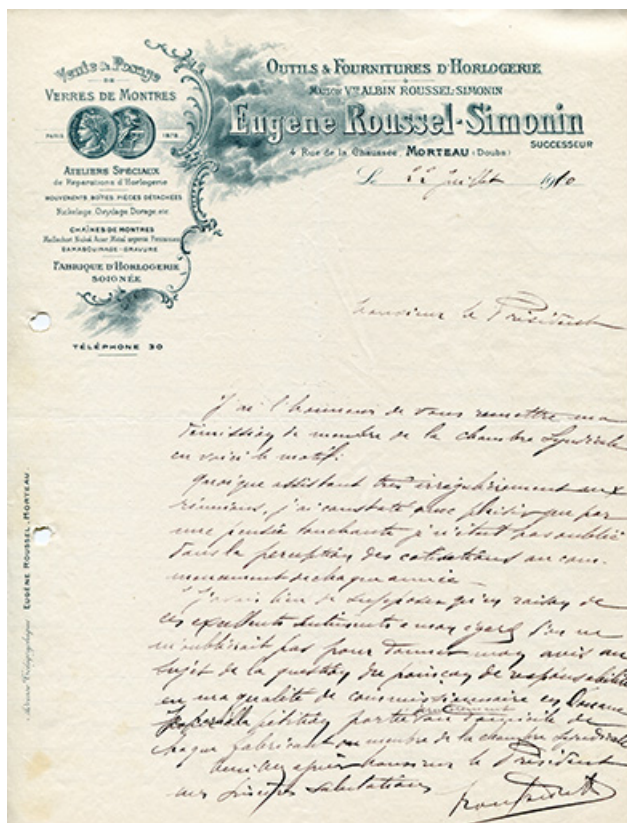 Vente & Posage
DE
VERRES DE MONTRES
PARIS 1878
ATELIERS SPÉCIAUX
de Réparations d'Horlogerie
MOUVEMENTS, BOÎTES, PIÈCES DÉTACHÉES
Nickelage, Oxydage, Dorage, etc.
CHAÎNES DE MONTRES
DAMASQUINAGE - GRAVURE
FABRIQUE D'HORLOGERIE
SOIGNÉE
TÉLÉPHONE 30
OUTILS & FOURNITURES D'HORLOGERIE
MAISON Vve ALBIN ROUSSEL-SIMONIN
Eugène Roussel-Simonin
SUCCESSEUR
4 Rue de la Chaussée, MORTEAU (Doubs)
Le 22 Juillet 1910
Monsieur le Président
J'ai l'honneur de vous remettre ma
démission de membre de la chambre Syndicale
en voici le motif:
Quoique assistant très irrégulièrement aux
réunions, j'ai constaté avec plaisir que par
une pensée touchante je n'étais pas oublié
dans la perception des cotisations au com-
mencement de chaque année -
J'avais lieu de supposer qu'en raison de
ces excellents sentiments à mon égard l'on ne
m'oublierait pas pour donner mon avis au
sujet de la question du poinçon de responsabilité
en ma qualité de commissionnaire en Douane
pétition
chaque fabricant ou membre de la chambre Syndicale
Monsieur le Président
mes sincères salutations
Adresse Télégraphique: EUGÈNE ROUSSEL, MORTEAU.